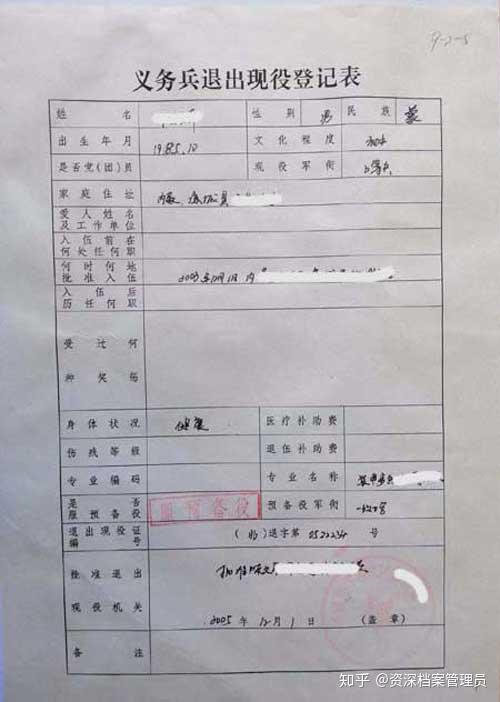 9-2-5
义务兵退出现役登记表
姓 名 性 别 男 民 族 蒙
出 生 年 月 1985.10 文 化 程 度 初中
是否党(团)员 现 役 军 衔
家 庭 住 址 内蒙
爱 人 姓 名
及 工 作 单 位
入 伍 前 在
何 处 任 何 职
何 时 何 地
批 准 入 伍 2003年12月 内
入 伍 后
历 任 何 职
受 过 何
种 奖 励
身 体 状 况 健康 医 疗 补 助 费
伤 残 等 级 退 伍 补 助 费
专 业 编 码 专 业 名 称
是 否
服 预 备 役 服预备役 预 备 役 军 衔
退 出 现 役 证
编 号 退字第 号
批 准 退 出
现 役 机 关
2005 年 12 月 1 日 (盖 章)
备 注
知乎 @资深档案管理员